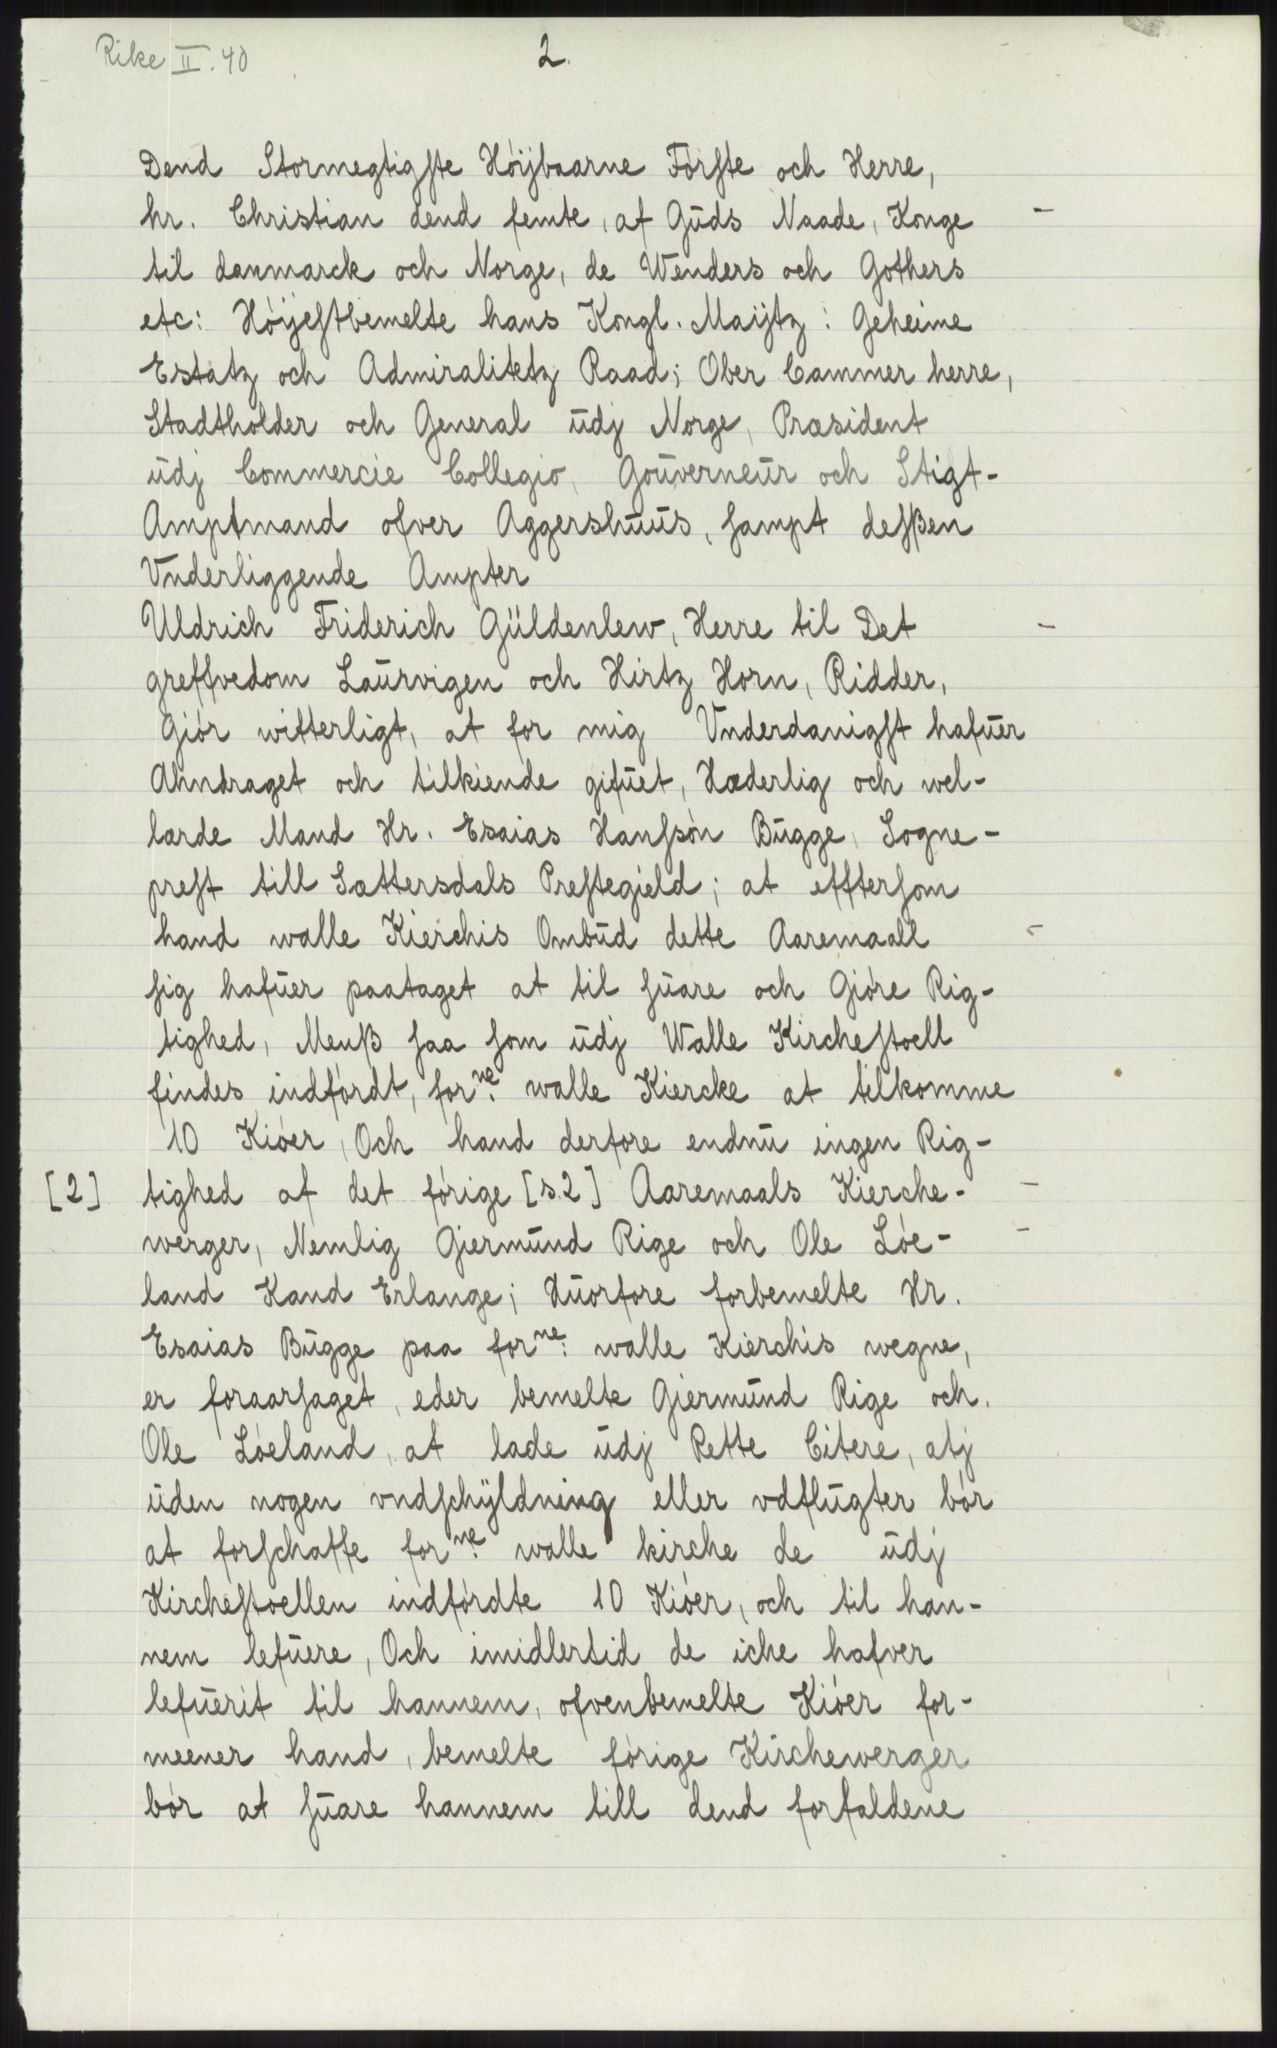 Rike II. 40
2.
Dend Stormegtigste Höijbaarne Förste och Herre,
hr. Christian dend femte, af Guds Naade, Konge
til danmarck och Norge, de Wenders och Gothers
etc: Höijestbemelte hans Kongl. Maijtz: Geheime
Estatz och Admiralitetz Raad; Ober Cammer herre,
Stadtholder och General udj Norge, Præsident
udj Commercie Collegio, Gouverneur och Stigt-
Amptmand ofver Aggershuus, sampt desßen
Vnderliggende Ampter
Uldrich Friderich Güldenlew, Herre til Det
greffvedom Laurvigen och Hirtz Horn, Ridder,
Giör witterligt, at for mig Vnderdanigst hafuer
Ahndraget och tilkiende gifuet, Hæderlig och wel-
lærde Mand Hr. Esaias Hanssön Bugge, Sogne-
prest till Sættersdals Prestegield; at efftersom
hand walle Kierchis Ombud dette Aaremaall
sig hafuer paataget at til suare och Giöre Rig-
tighed, Menß saa som udj Walle Kirchestoell
findes indfördt, forne: walle Kiercke at tilkomme
10 Kiöer, Och hand derfore endnu ingen Rig-
[2] tighed af det förige [s.2] Aaremaals Kierche-
werger, Nemlig Giermund Rige och Ole Löe-
land Kand Erlange; Huorfore forbemelte Hr.
Esaias Bugge paa forne: walle Kierchis wegne,
er foraarsaget, eder bemelte Giermund Rige och
Ole Löeland, at lade udj Rette Citere, atj
uden nogen vndschÿldning eller vdflugter bör
at forschaffe forne: walle kirche de udj
Kirchestoellen indfördte 10 Kiöer, och til han-
nem lefuere, Och imidlertid de iche hafver
lefuerit til hannem, ofvenbemelte Kiöer for-
meener hand, bemelte förige Kirchewerger
bör at suare hannem till dend forfaldene